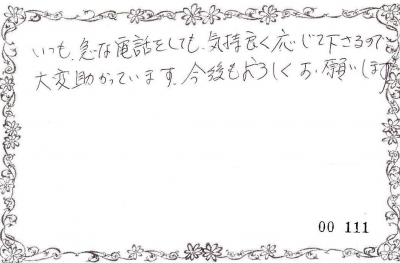 いつも、急な電話をしても、気持良く応じて下さるので
大変助かっています。今後もよろしくお願いします
00 111